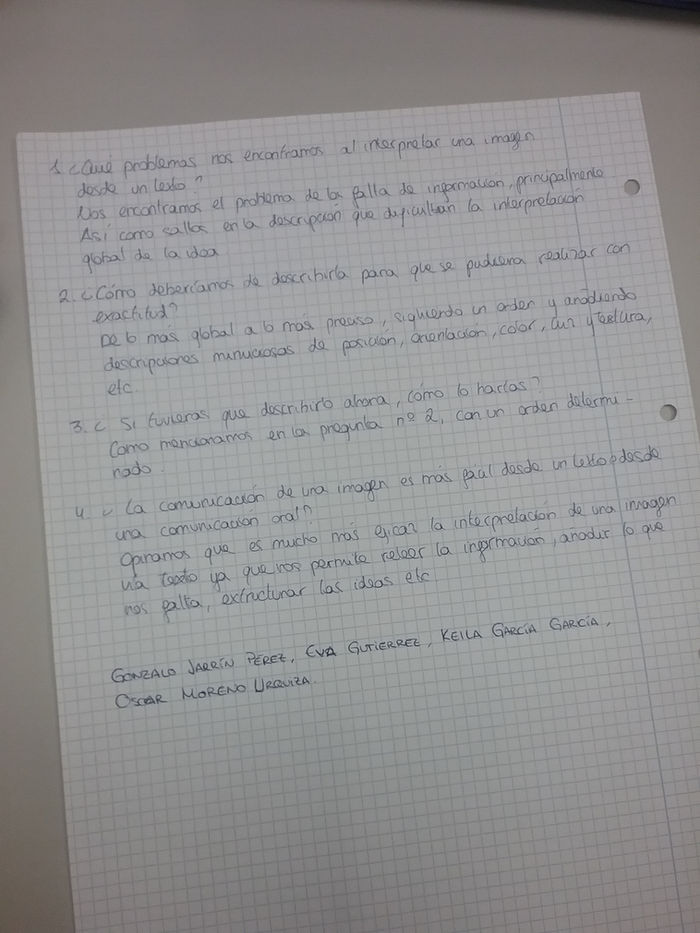 1. ¿Qué problemas nos encontramos al interpretar una imagen
desde un texto?
Nos encontramos el problema de la falta de información, principalmente
Así como saltos en la descripción que dificultan la interpretación
global de la idea
2. ¿Cómo deberíamos de describirla para que se pudiera realizar con
exactitud?
De lo más global a lo más preciso, siguiendo un orden y añadiendo
descripciones minuciosas de posición, orientación, color, luz y textura,
etc.
3. ¿ Si tuvieras que describirlo ahora, cómo lo harías?
Como mencionamos en la pregunta nº 2, con un orden determi-
nado.
4. ¿ La comunicación de una imagen es más fácil desde un texto o desde
una comunicación oral?
Opinamos que es mucho más eficaz la interpretación de una imagen
vía texto ya que nos permite releer la información, añadir lo que
nos falta, extructurar las ideas etc
GONZALO JARRÍN PÉREZ, EVA GUTIERREZ, KEILA GARCÍA GARCÍA,
OSCAR MORENO URQUIZA.